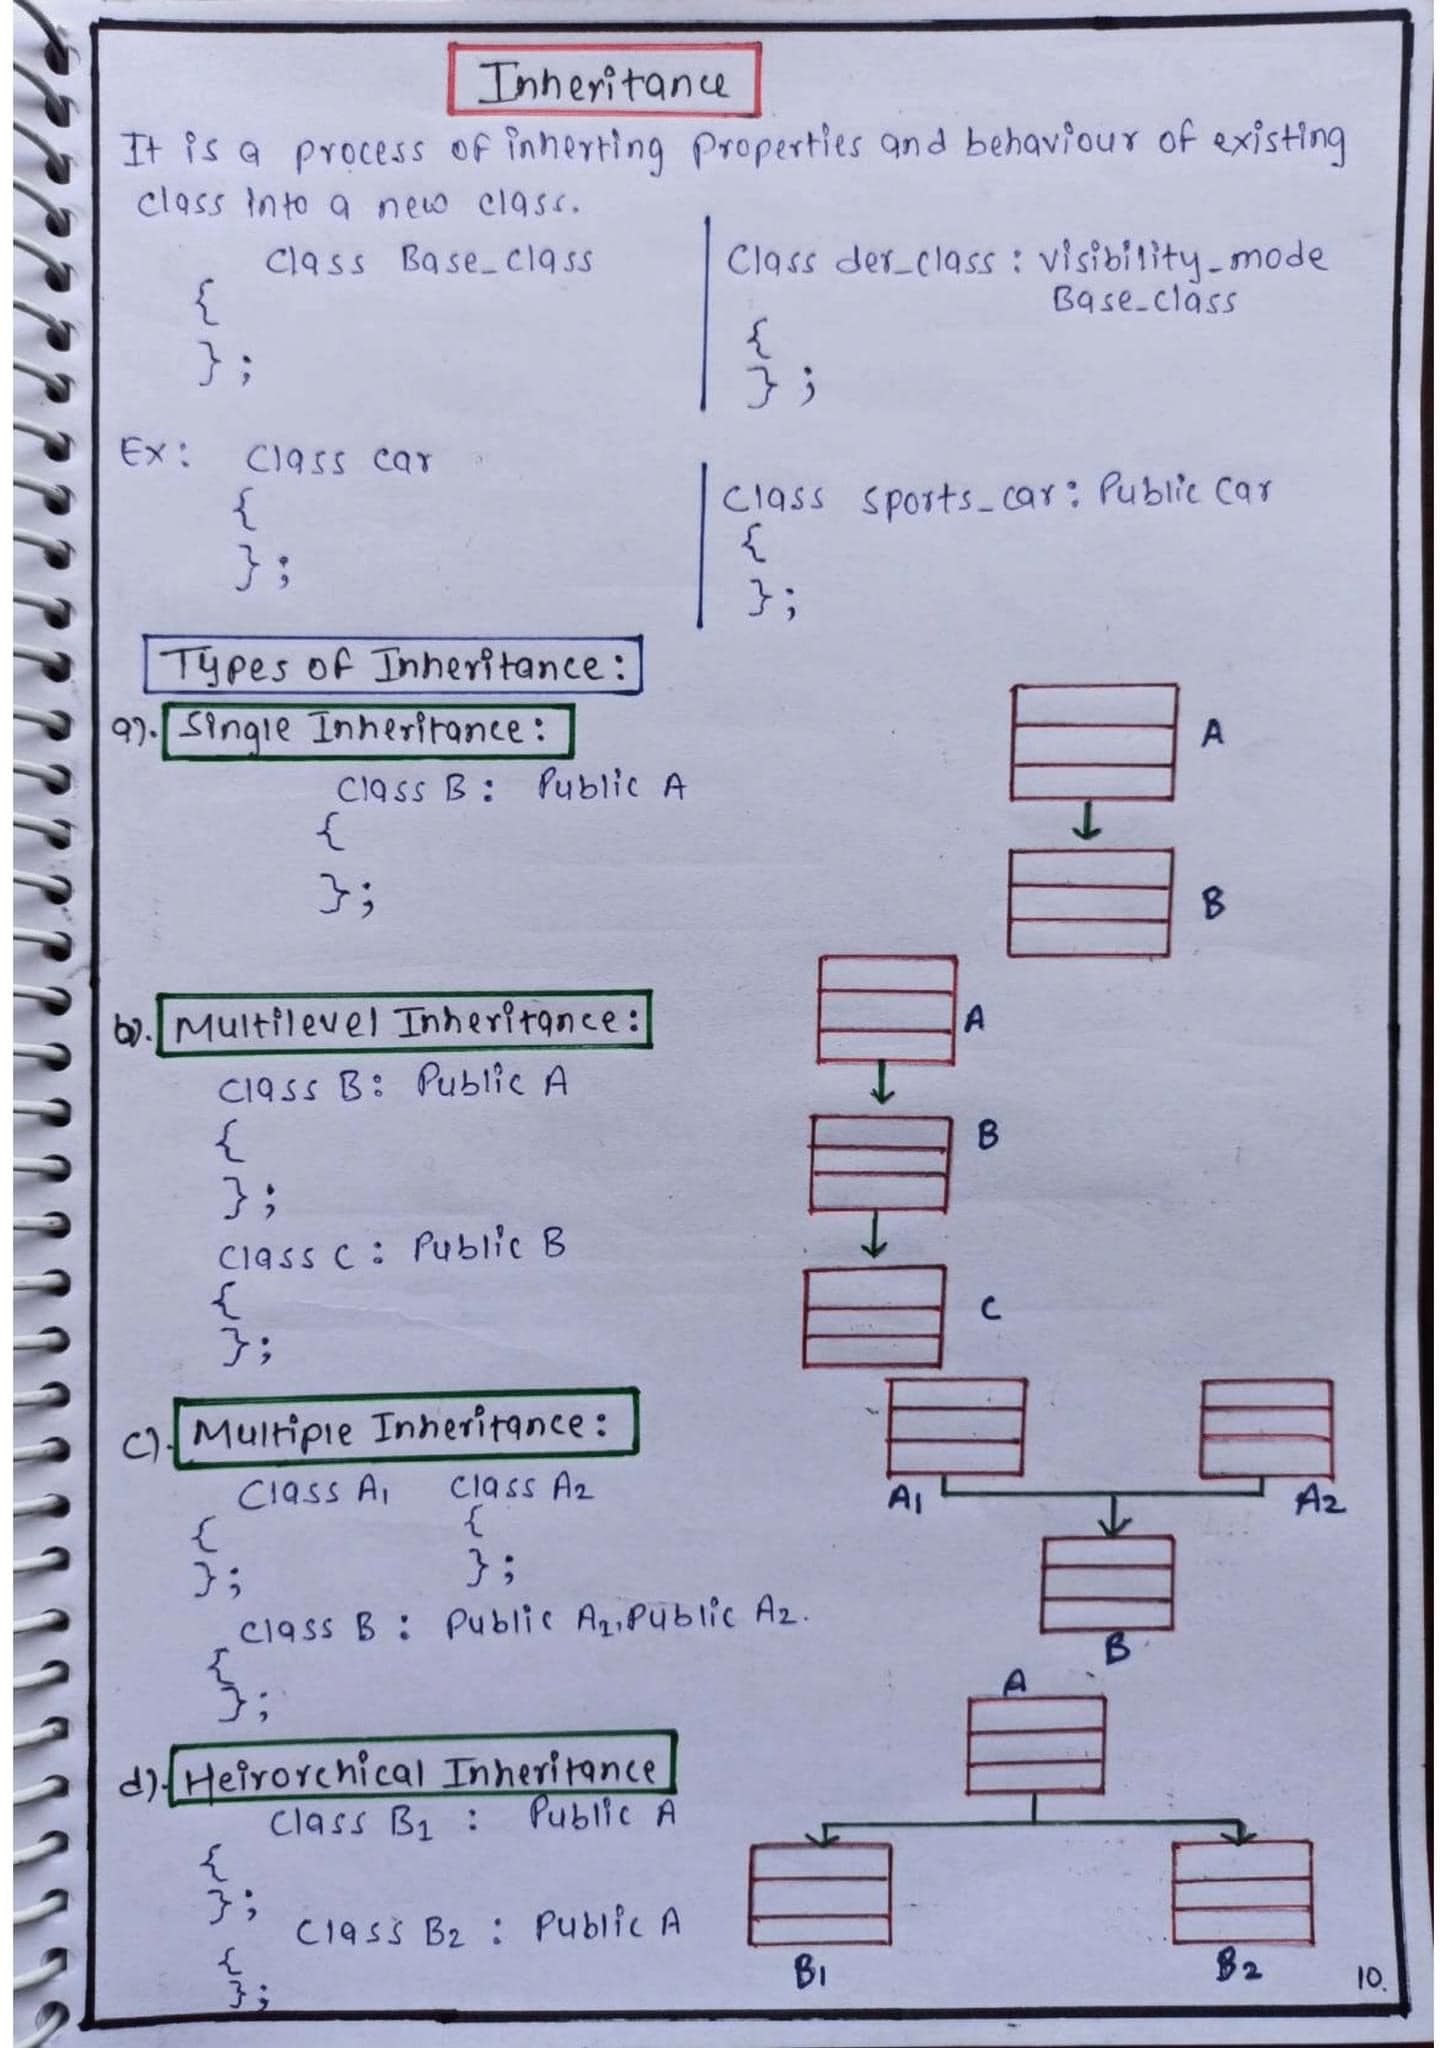 Inheritance
It is a process of inherting Properties and behaviour of existing
class into a new class.
Class Base_class
{
};
Class der_class : visibility_mode
Base_class
{
};
Ex: Class car
{
};
Class sports_car : Public Car
{
};
Types of Inheritance:
a). Single Inheritance:
Class B : Public A
{
};
A
B
b). Multilevel Inheritance:
Class B : Public A
{
};
Class C : Public B
{
};
A
B
C
c). Multiple Inheritance:
Class A1 Class A2
{ {
}; };
Class B : Public A1, Public A2.
{
};
A1 A2
B
d). Heirorchical Inheritance
Class B1 : Public A
{
};
Class B2 : Public A
{
};
A
B1 B2
10.